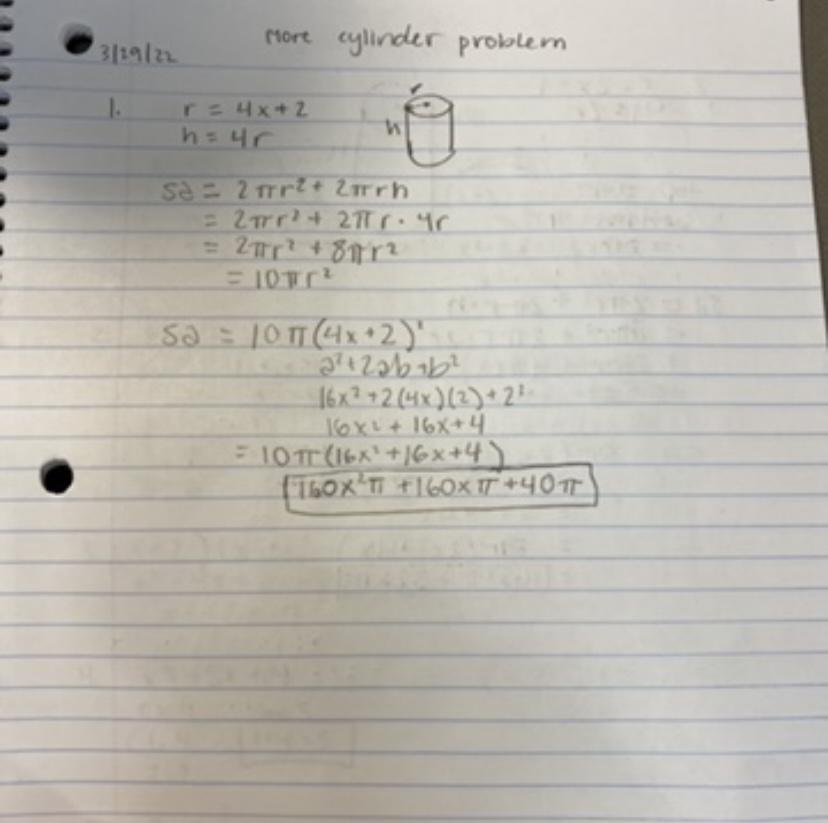 More cylinder problem
3/29/22
1. r = 4x+2
h = 4r
r
h
sa = 2πr² + 2πrh
= 2πr² + 2πr · 4r
= 2πr² + 8πr²
= 10πr²
sa = 10π(4x+2)²
a²+2ab+b²
16x²+2(4x)(2)+2²
16x² + 16x+4
= 10π(16x²+16x+4)
160x²π +160xπ+40π